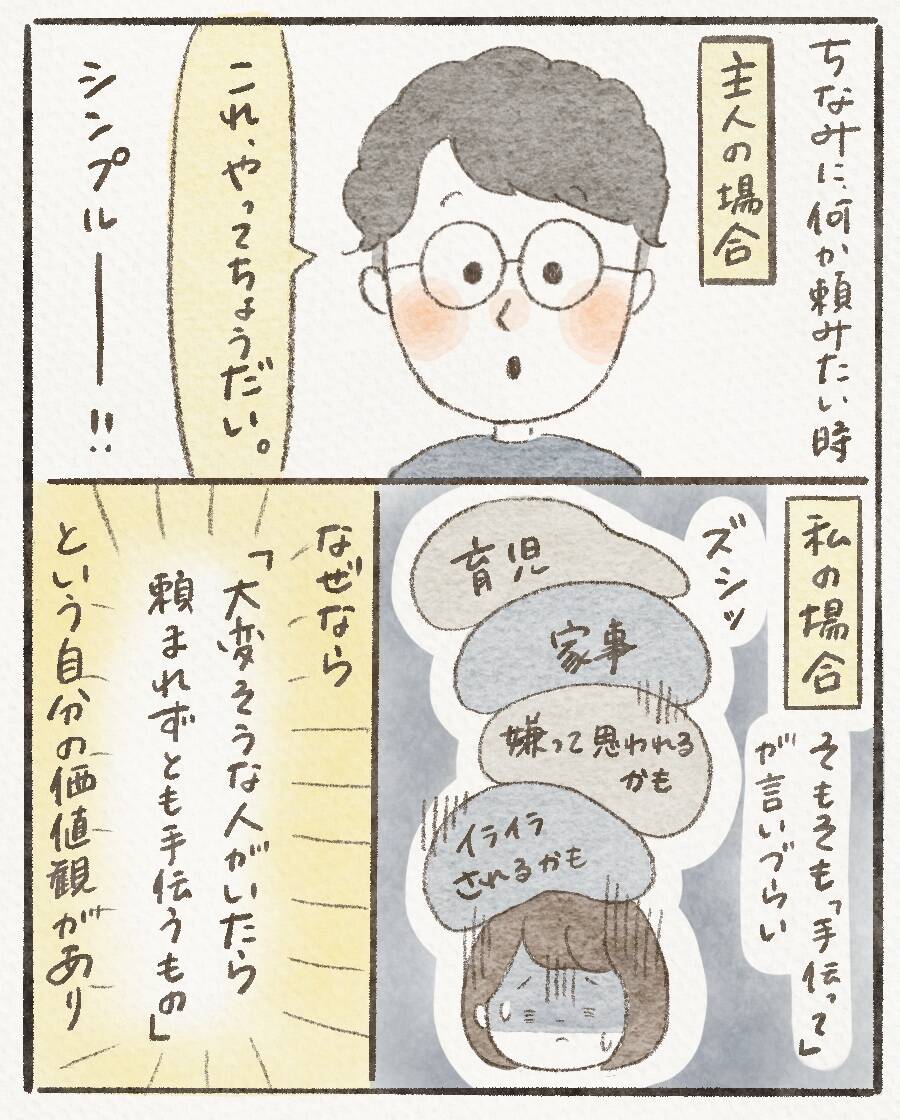 ちなみに何か頼みたい時
主人の場合
これ、やってちょうだい。
シンプル――!!
私の場合
そもそも「手伝って」
が言いづらい
ズシッ
育児
家事
嫌って思われる
かも
イライラ
されるかも
なぜなら
「大変そうな人がいたら
頼まれずとも手伝うもの」
という自分の価値観があり